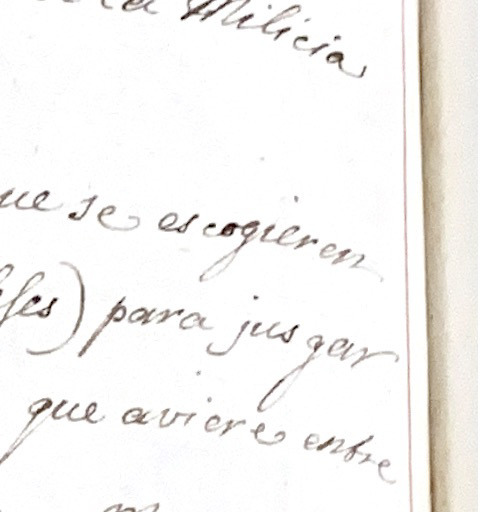 la Milicia
que se escogieren
) para jusgar
que aviere entre